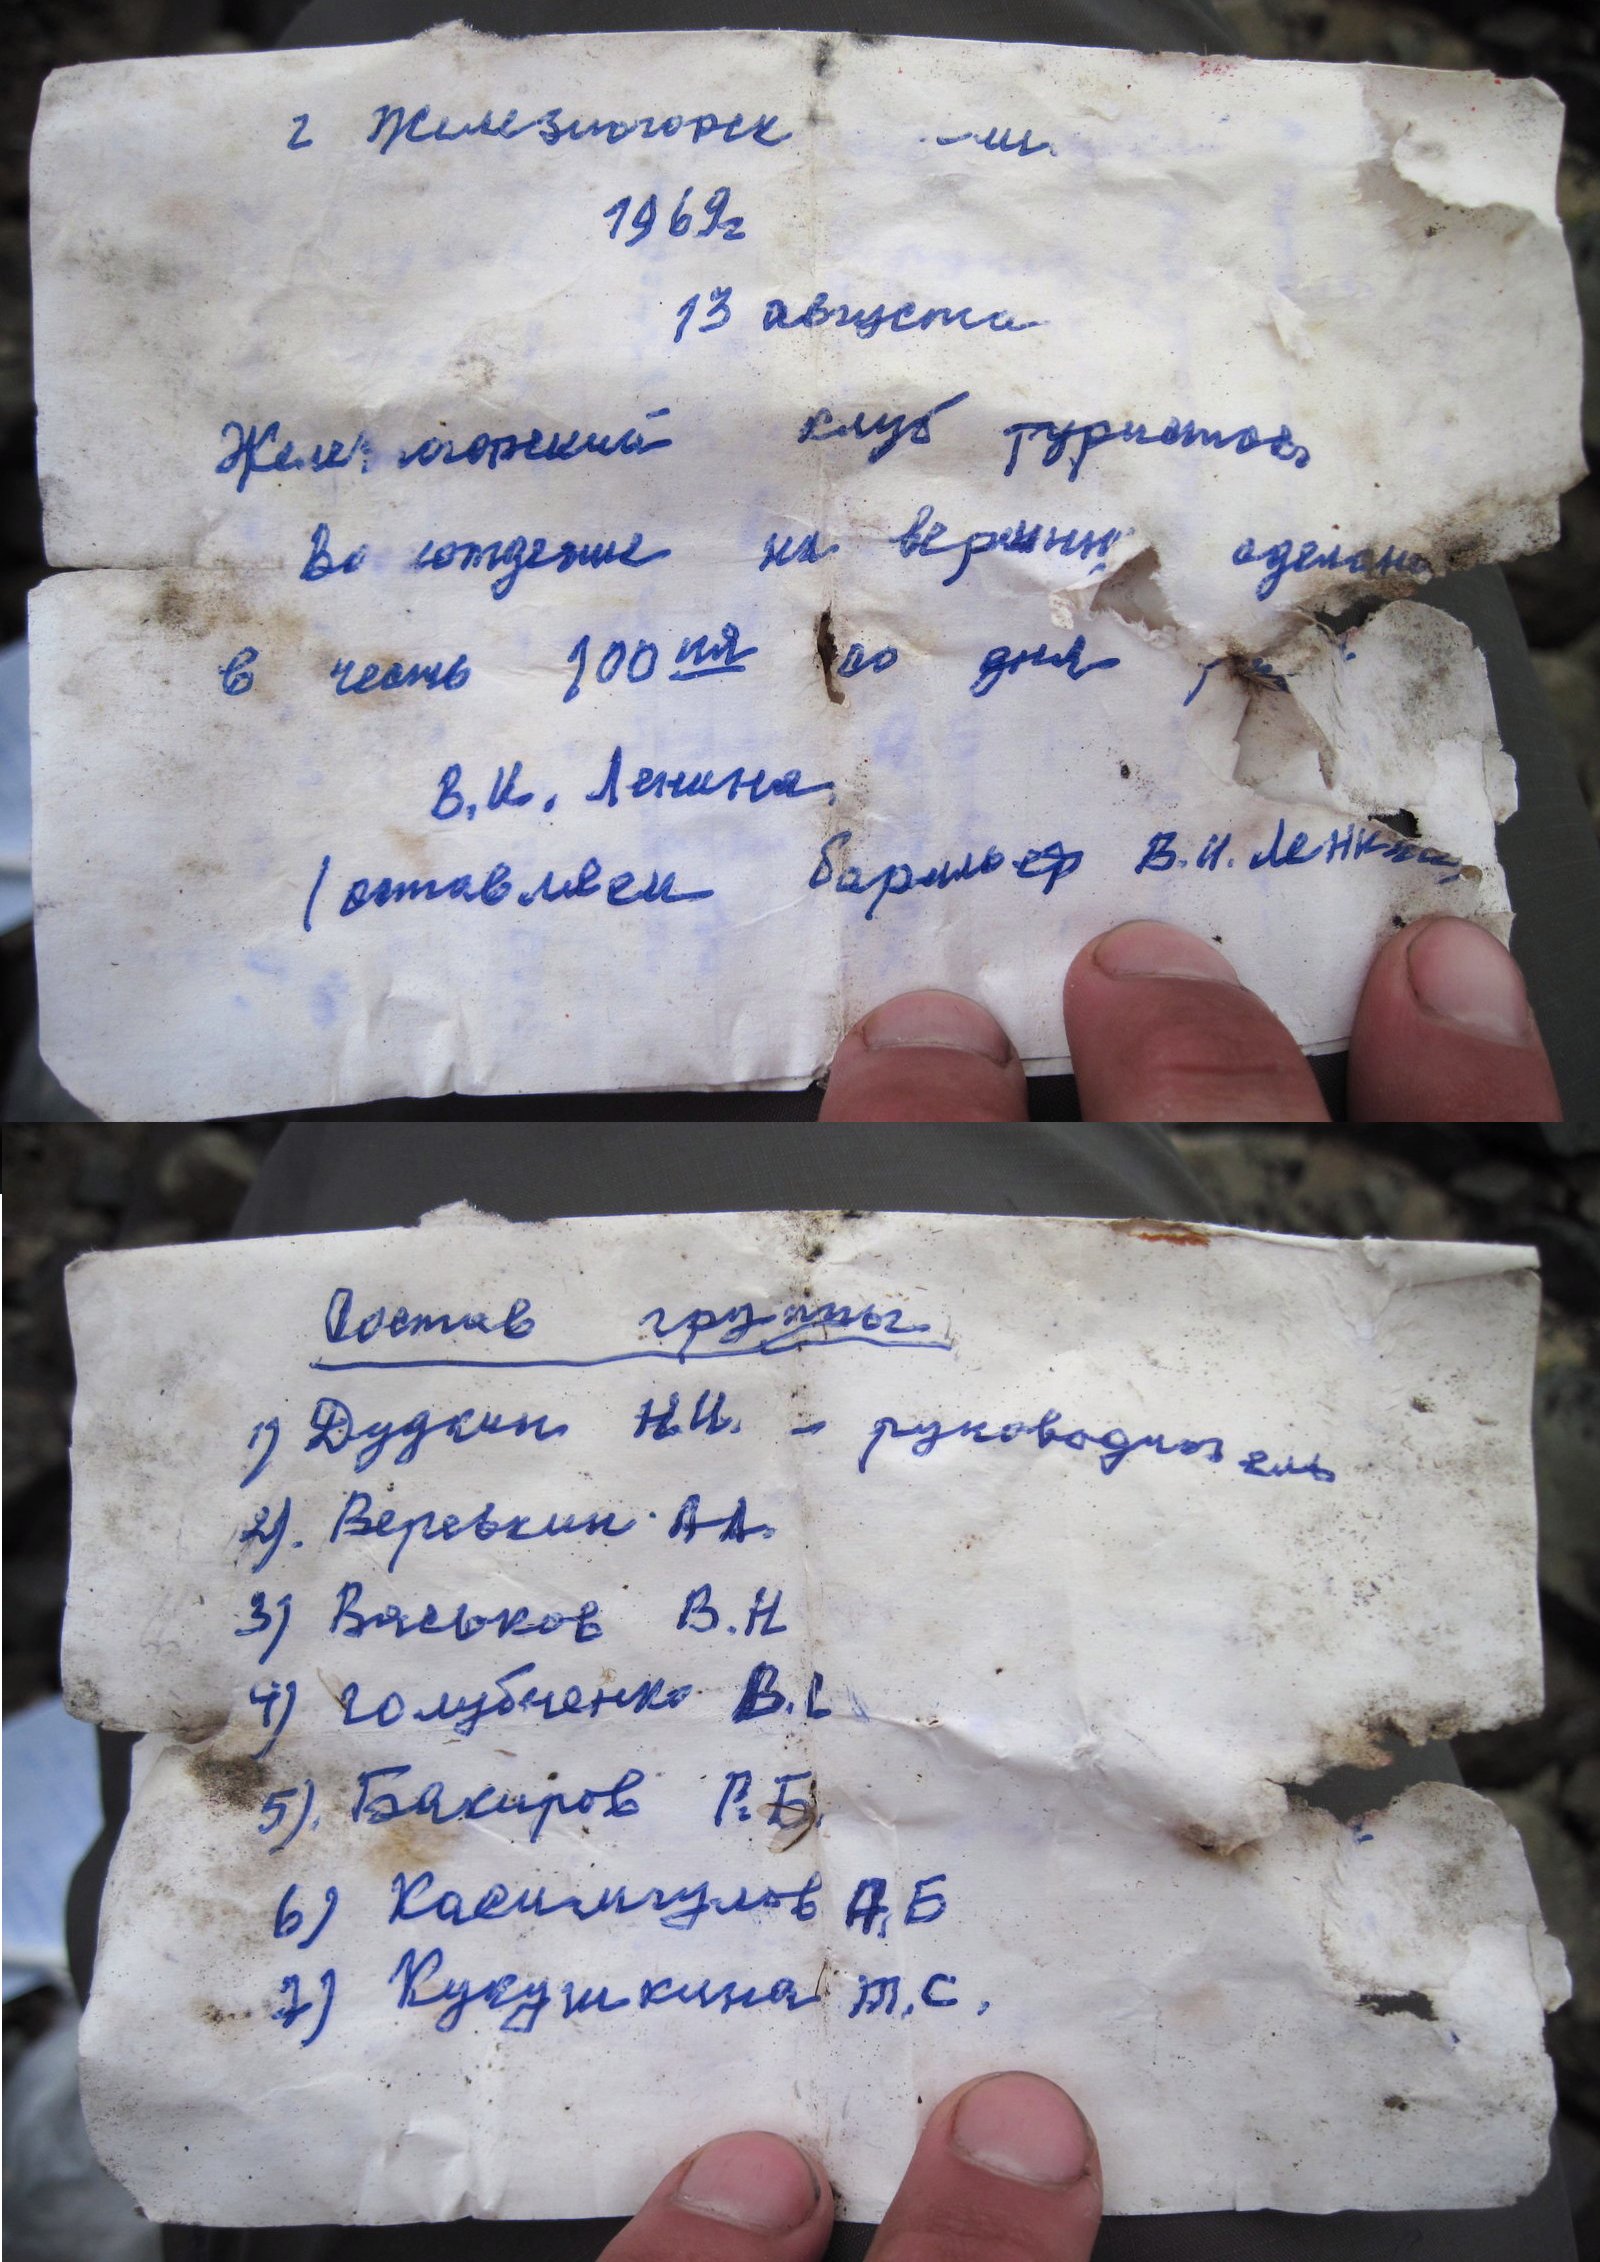 г Железногорск
1969г
13 августа
Железногорский клуб туристов
Восхождение на вершину сделано
в честь 100ия со дня
В.И. Ленина
/оставляем барельеф В.И. Ленина
Состав группы
1) Дудкин Н.И. - руководитель
2). Веревкин А.А.
3) Васьков В.Н
4) Голубченко В.
5). Бакиров Р.Б.
6) Касимкулов А.Б
7) Кукушкина Т.С.